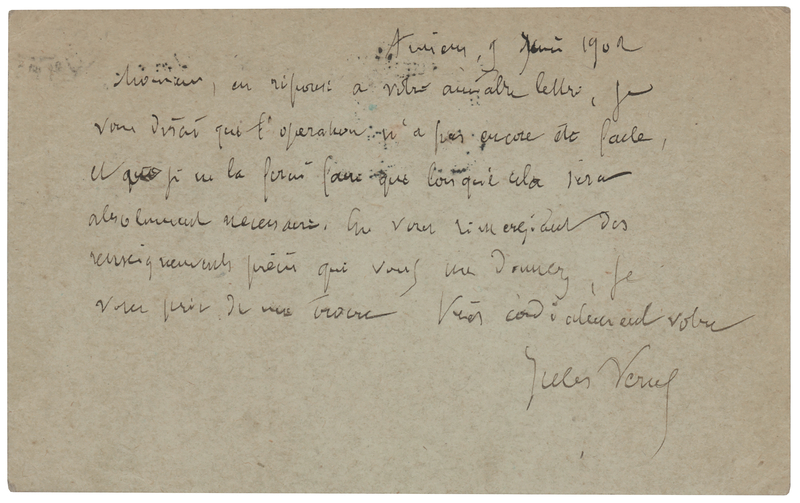 Amiens, 9 Juin 1902
Monsieur, en réponse à votre aimable lettre, je
vous dirai que l'opération n'a pas encore été faite,
et que je ne la ferai faire que lorsque cela sera
absolument nécessaire. En vous remerciant des
renseignements précis que vous me donnez, je
vous prie de me croire Très cordialement votre
Jules Verne